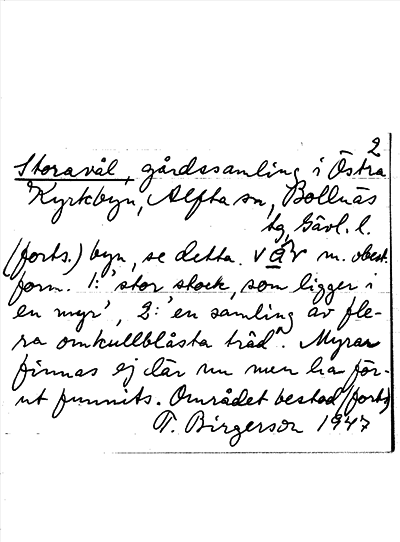 2
Storavål, gårdssamling i Östra
Kyrkbyn, Alfta sn, Bollnäs
tg, Gävl. l.
(forts.) byn, se detta. våv m. obest.
form. 1: 'stor stock, som ligger i
en myr', 2: 'en samling av fle-
ra omkullblåsta träd'. Myrar
finnas ej där nu men ha för-
ut funnits. Området bestod (forts)
T. Birgerson 1947